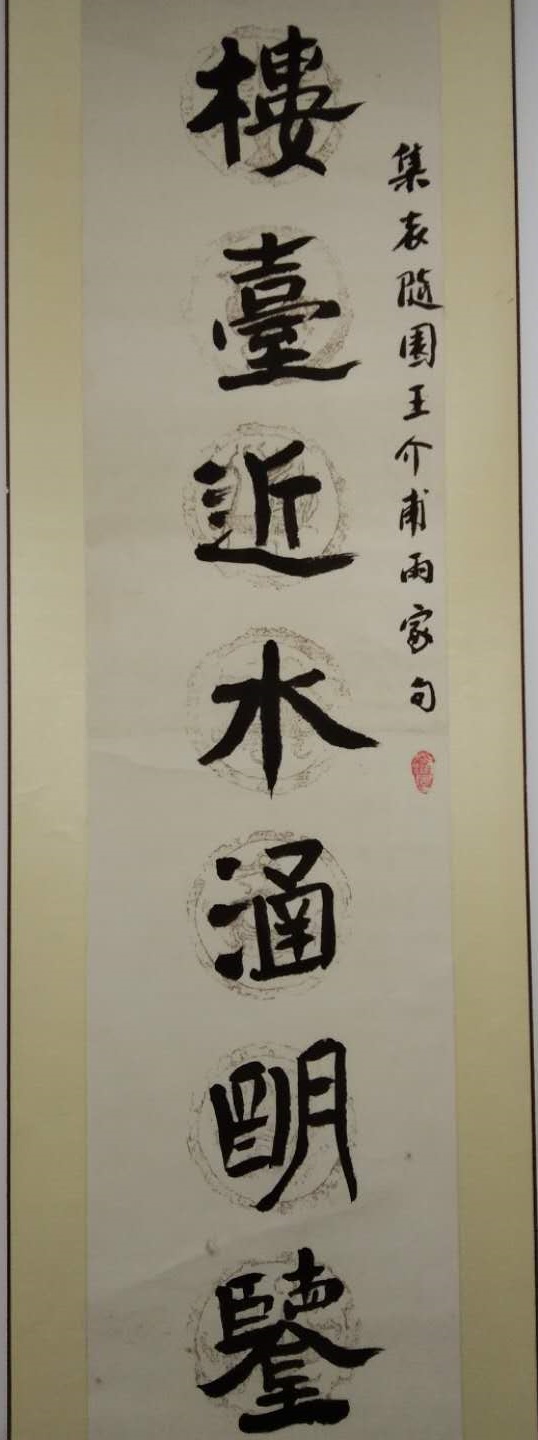 集袁隨園王介甫兩家句
樓臺近水涵明鑒